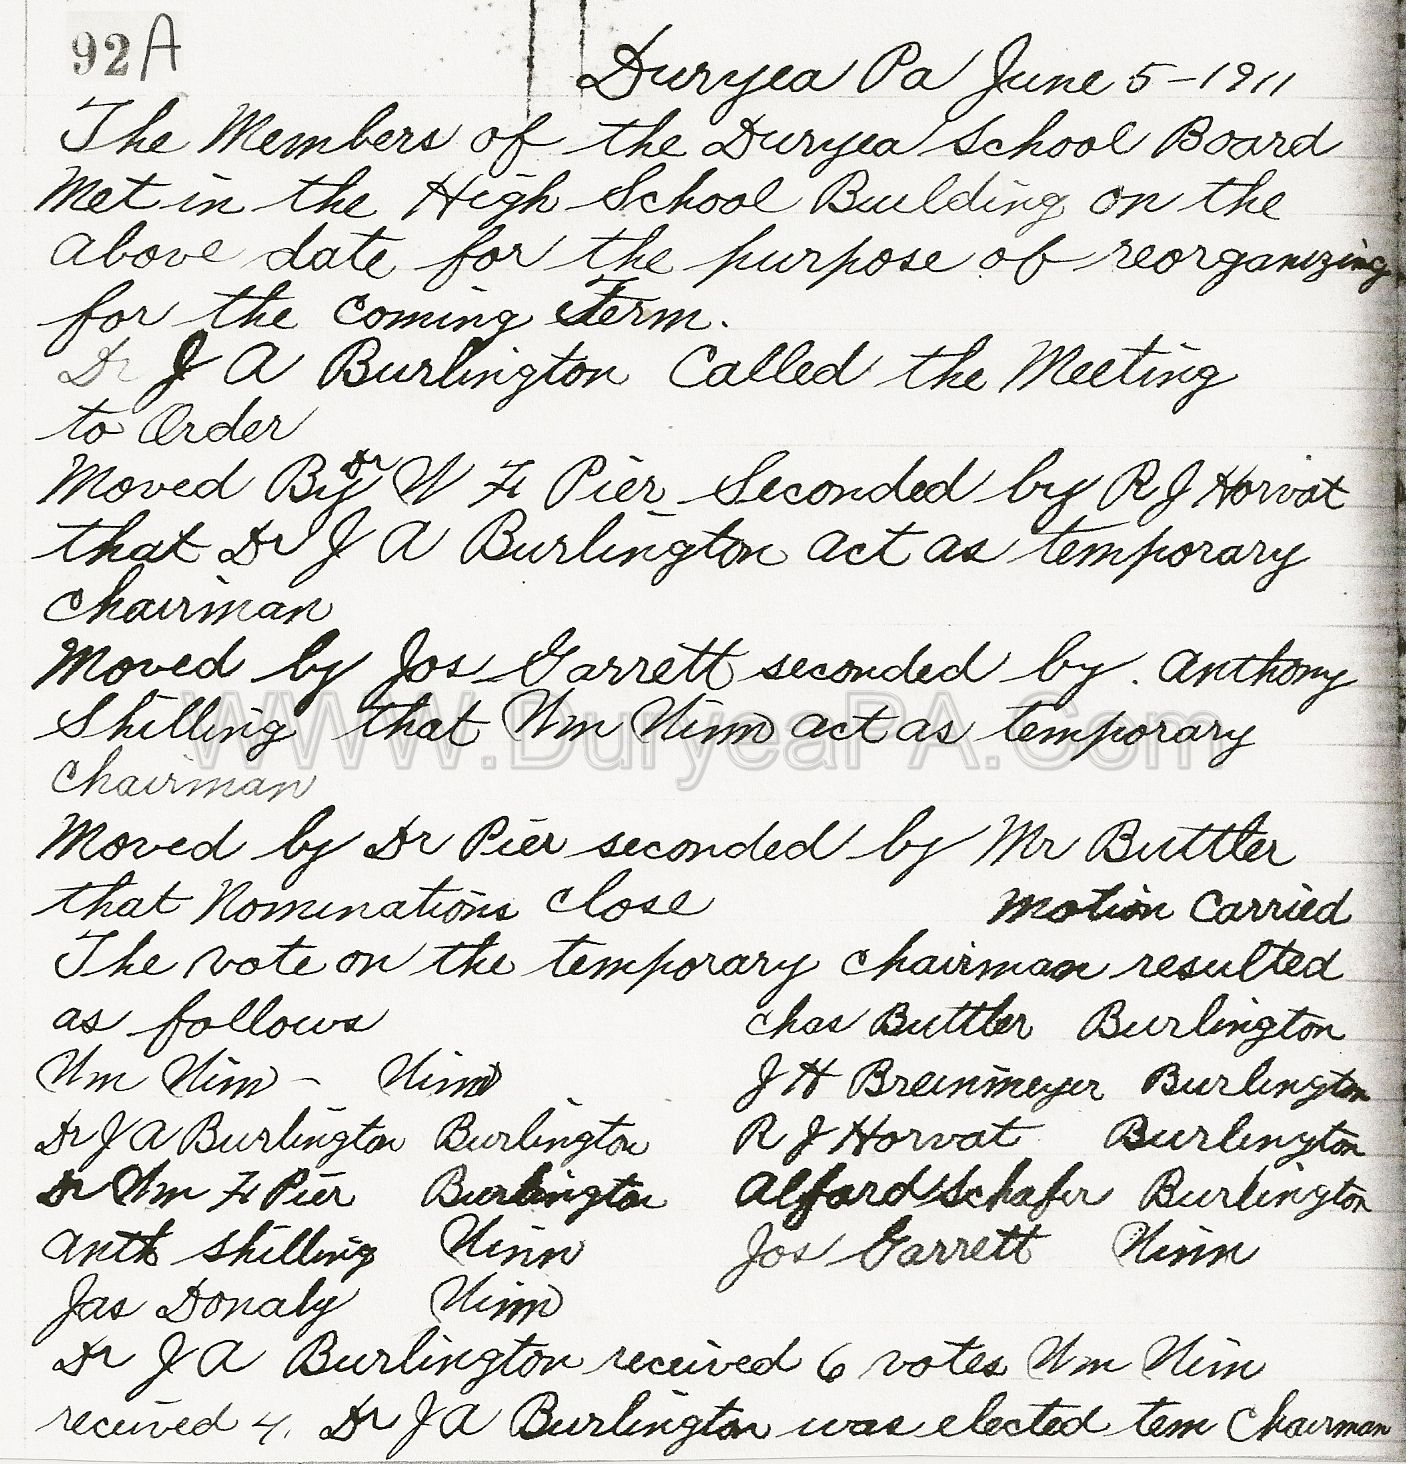 92A
Duryea Pa June 5-1911
The Members of the Duryea School Board
Met in the High School Building on the
above date for the purpose of reorganizing
for the coming Term.
Dr J A Burlington Called the Meeting
to Order
Moved By Dr W F Pier Seconded by R J Horvat
that Dr J A Burlington act as temporary
chairman
Moved by Jos Garrett seconded by. Anthony
Shilling that Wm Ninn act as temporary
chairman
WWW.DuryeaPA.Com
Moved by Dr Pier seconded by Mr Buttler
that Nominations close Motion Carried
The vote on the temporary chairman resulted
as follows chas Buttler Burlington
Wm Nim - Nim J H Breinmeyer Burlington
Dr J A Burlington Burlington R J Horvat Burlington
Dr Wm F Pier Burlington Alford Schafer Burlington
Anth Shilling Ninn Jos Garrett Ninn
Jas Donaly Ninn
Dr J A Burlington received 6 votes Wm Nim
received 4. Dr J A Burlington was elected tem Chairman